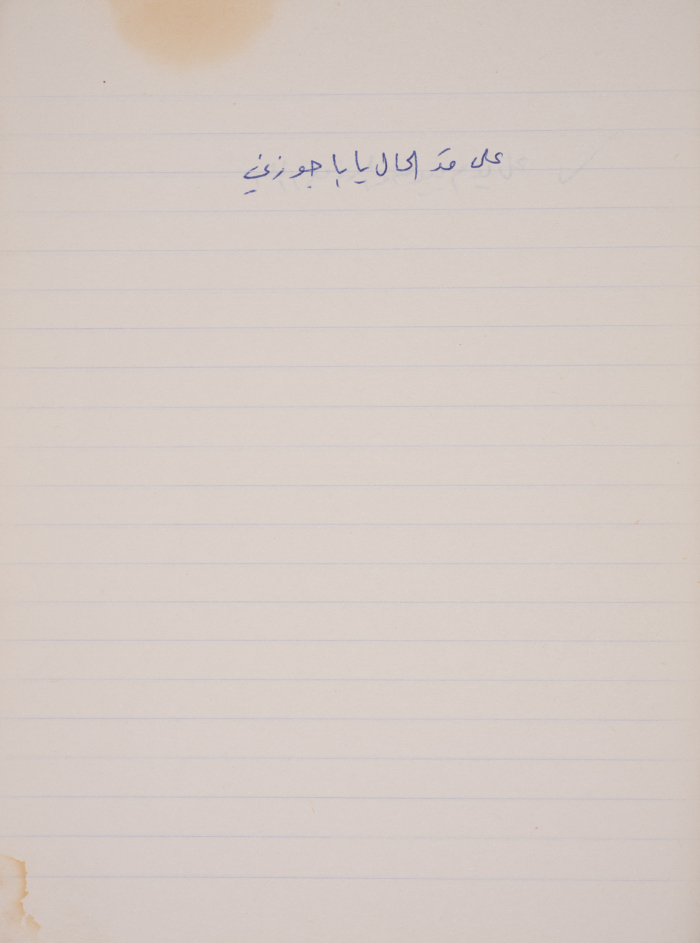 على قد الحال يا بابا جوزني